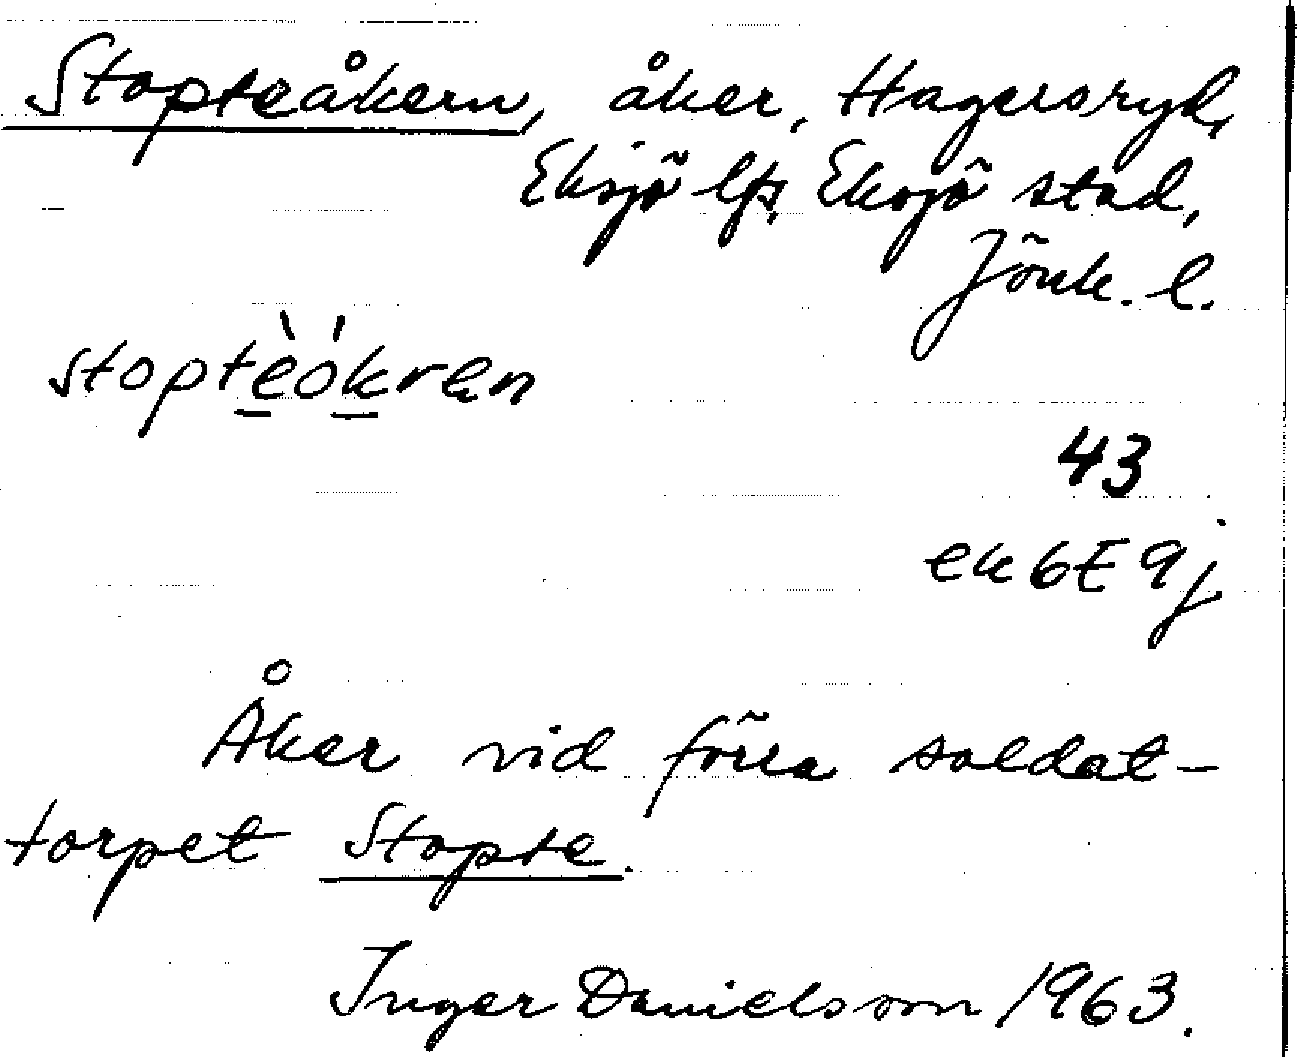 Stopteåkern, åker, Hagersryd,
Eksjö lfs, Eksjö stad,
Jönk. l.
stoptèókren
43
ek 6E 9j
Åker vid förra soldat-
torpet Stopte.
Inger Danielsson 1963.